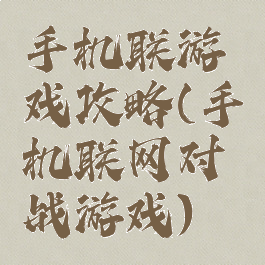 手机联游
戏攻略(手
机联网对
战游戏)